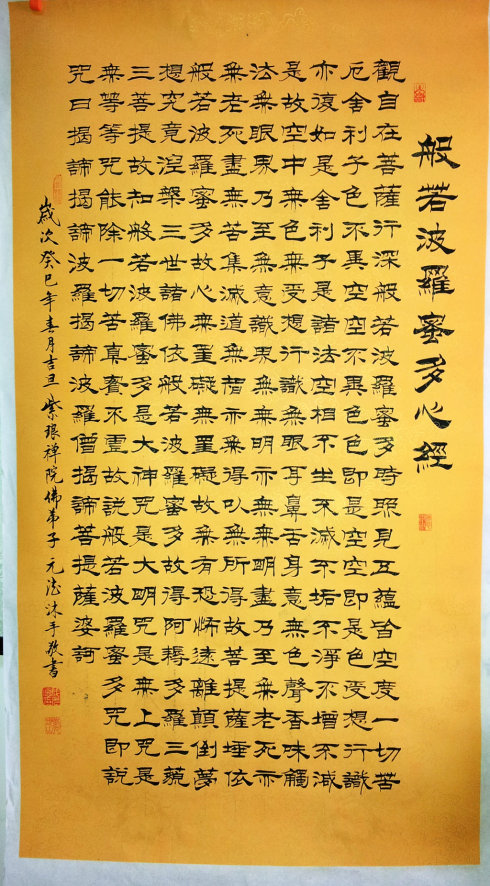 般若波羅蜜多心經
觀自在菩薩行深般若波羅蜜多時照見五蘊皆空度一切苦
厄舍利子色不異空空不異色色即是空空即是色受想行識
亦復如是舍利子是諸法空相不生不滅不垢不淨不增不減
是故空中無色無受想行識無眼耳鼻舌身意無色聲香味觸
法無眼界乃至無意識界無無明亦無無明盡乃至無老死亦
無老死盡無苦集滅道無智亦無得以無所得故菩提薩埵依
般若波羅蜜多故心無罣礙無罣礙故無有恐怖遠離顛倒夢
想究竟涅槃三世諸佛依般若波羅蜜多故得阿耨多羅三藐
三菩提故知般若波羅蜜多是大神咒是大明咒是無上咒是
無等等咒能除一切苦真實不虛故説般若波羅蜜多咒即説
咒曰揭諦揭諦波羅揭諦波羅僧揭諦菩提薩婆訶
歲次癸巳年春月吉旦紫琅禅院佛弟子元沐手敬書